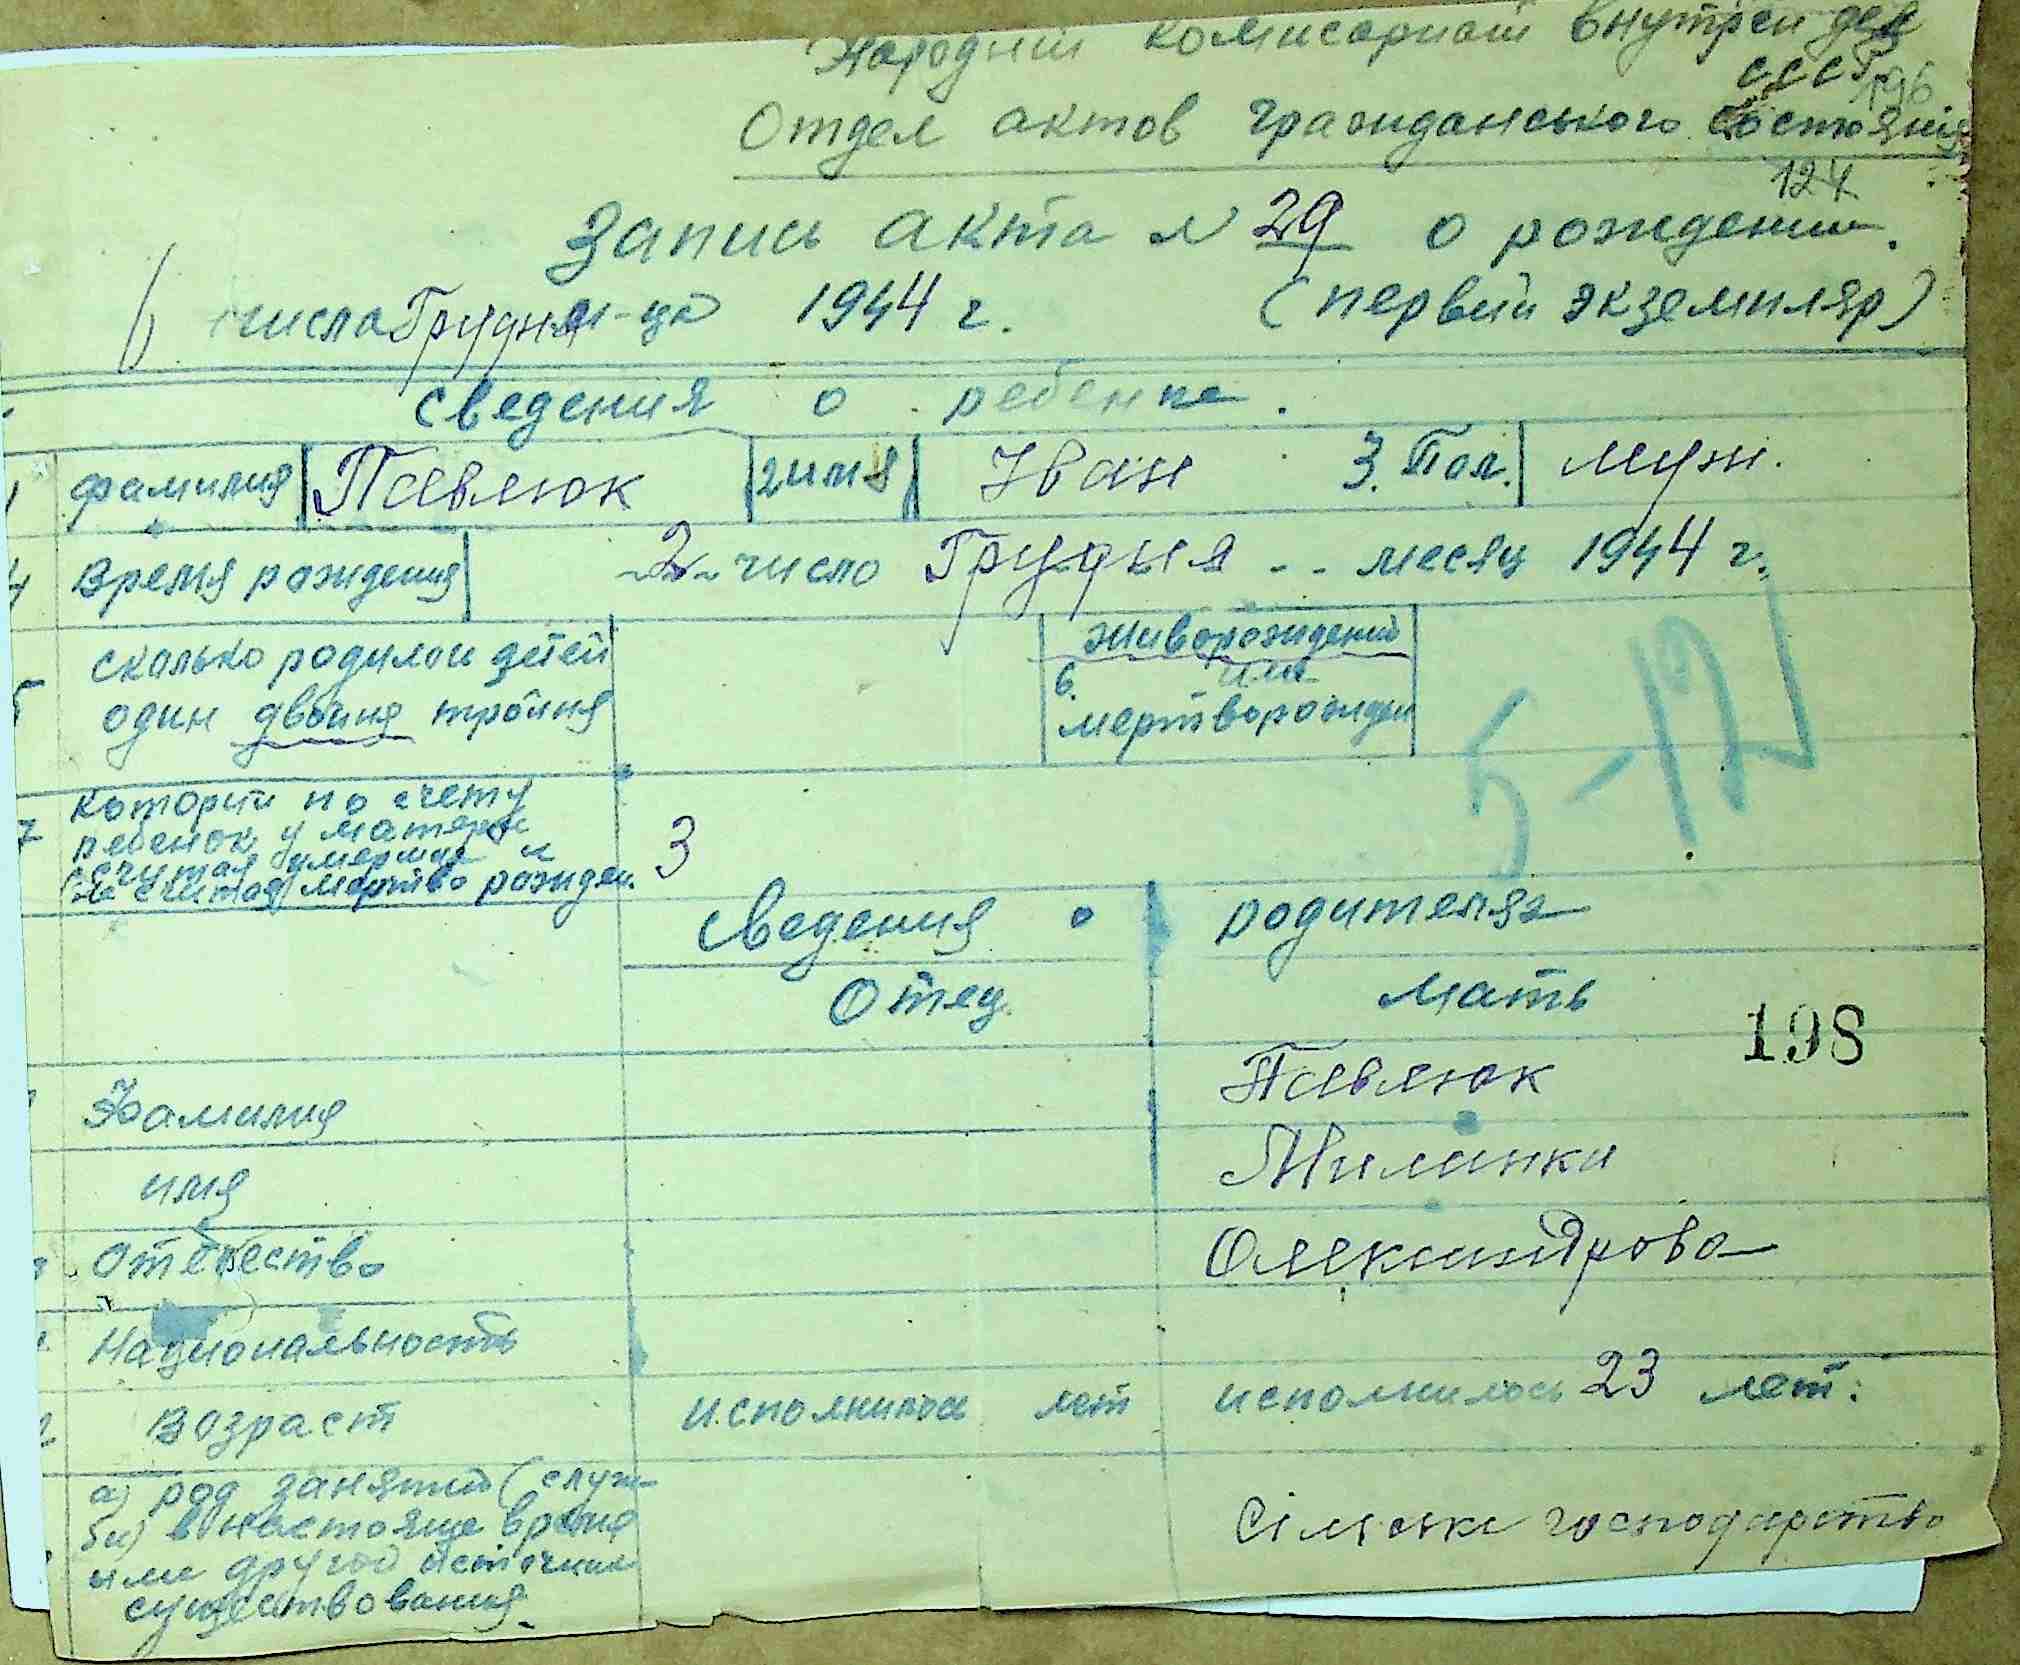 Народний комисариат внутрен дел
СССР
196
Отдел актов гражданського состояния
124
Запись акта N 29 о рождении.
6 числа Грудня м-ца 1944 г. (первий экземпляр)
Сведения о ребенке.
1 фамилия Павлюк 2 имя Іван 3. Пол. муж.
4 Время рождения 2 число Грудня месяц 1944 г.
5 сколько родилои детей живорождений
один двойня тройня 6. или
мертворожден
5-12
7 которий по счету
ребенок у матери
считая умерших и 3
не считая мертво рожден.
Сведения о родителях
Отец Мать
198
Фамилия Павлюк
имя Милинки
Отечество Олександрова
Национальность
Возраст исполнилось лет исполнилось 23 лет.
а) род занятий (служ-
би) в настояще время Сільське господарство
или другой источник
существования